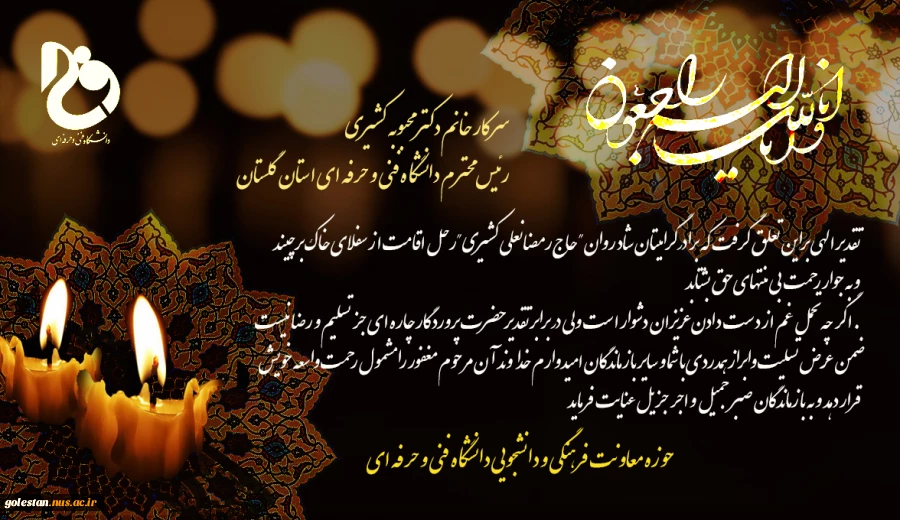 انا لله و انا الیه راجعون
دانشگاه فنی و حرفه ای
سرکار خانم دکتر محبوبه کشیری
رئیس محترم دانشگاه فنی و حرفه ای استان گلستان
تقدیر الهی بر این تعلق گرفت که برادر گرامیتان شادروان "حاج رمضانعلی کشیری" رحل اقامت از سفلای خاک برچیند
و به جوار رحمت بی منتهای حق بشتابد
. اگر چه تحمل غم از دست دادن عزیزان دشوار است ولی در برابر تقدیر حضرت پروردگار چاره ای جز تسلیم و رضا نیست
ضمن عرض تسلیت و ابراز همدردی با شما و سایر بازماندگان امیدوارم خداوند آن مرحوم مغفور را مشمول رحمت واسعه خویش
قرار دهد و به بازماندگان صبر جمیل و اجر جزیل عنایت فرماید
حوزه معاونت فرهنگی و دانشجویی دانشگاه فنی و حرفه ای
golestan.nus.ac.ir